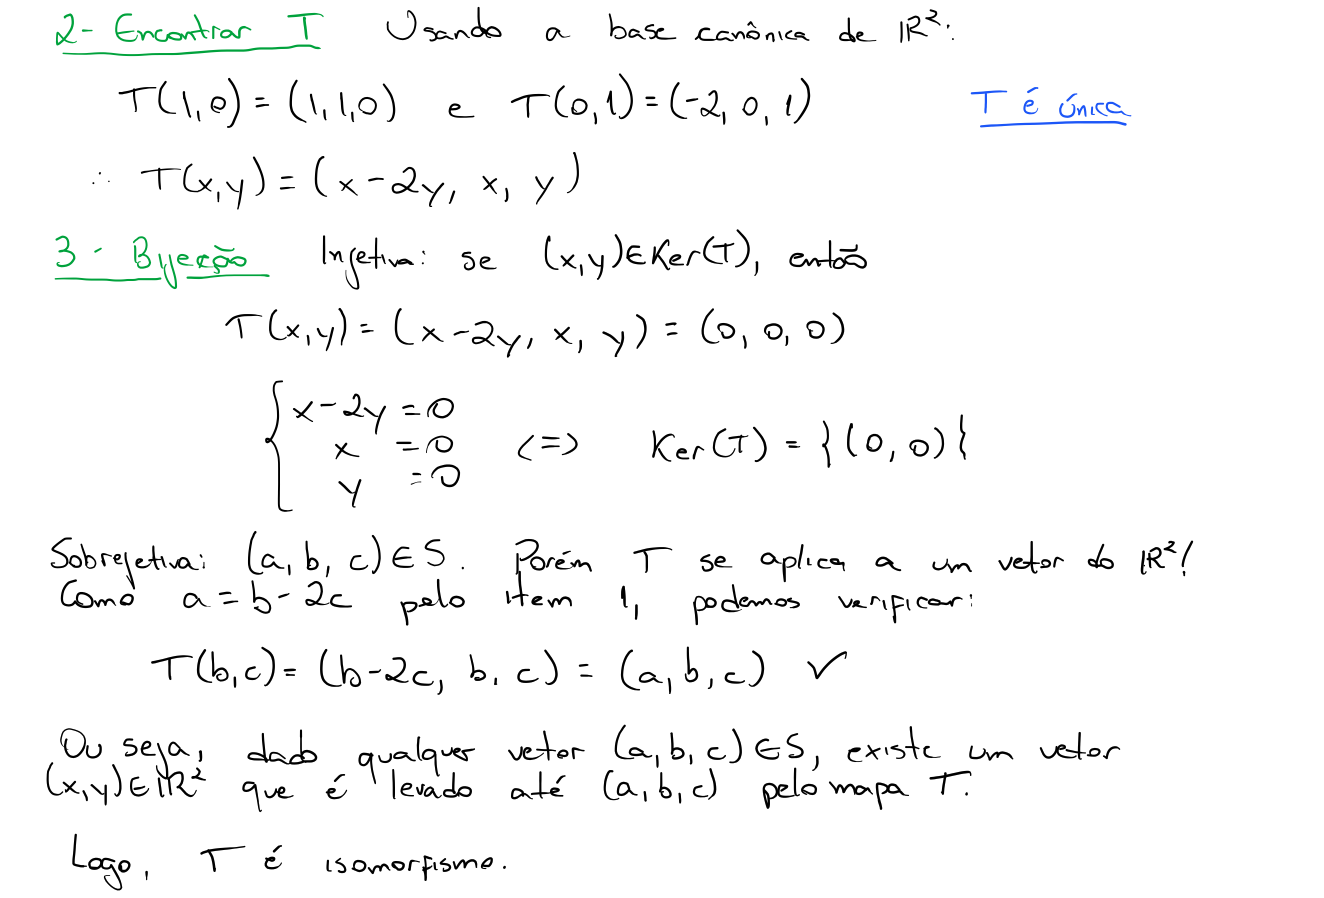 2- Encontrar T Usando a base canônica de ℝ²:
T(1,0) = (1,1,0) e T(0,1) = (-2, 0, 1) T é única
∴ T(x,y) = (x-2y, x, y)
3 - Bijeção Injetiva: se (x,y)∈Ker(T), então
T(x,y) = (x-2y, x, y) = (0, 0, 0)
x-2y = 0
x = 0 <=> Ker(T) = {(0,0)}
y = 0
Sobrejetiva: (a, b, c) ∈ S. Porém T se aplica a um vetor do ℝ²!
Como a = b - 2c pelo item 1, podemos verificar:
T(b,c) = (b-2c, b, c) = (a,b,c) ✓
Ou seja, dado qualquer vetor (a,b,c) ∈ S, existe um vetor
(x,y)∈ℝ² que é levado até (a,b,c) pelo mapa T.
Logo, T é isomorfismo.